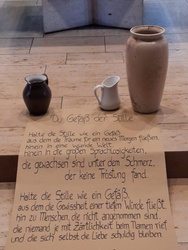 Du Gefäß der Stille
Halte die Stille wie ein Gefäß,
aus dem die Träume für ein neues Morgen fließen,
hinein in eine wunde Welt,
hinein in die großen Sprachlosigkeiten,
die gewachsen sind unter dem Schmerz,
der keine Tröstung fand.
Halte die Stille wie ein Gefäß,
aus dem die Gewissheit einer tiefen Würde fließt
hin zu Menschen, die nicht angenommen sind,
die niemand je mit Zärtlichkeit beim Namen rief
und die sich selbst die Liebe schuldig bleiben.